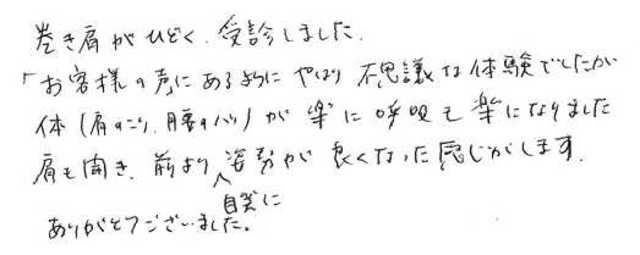 巻き肩がひどく、受診しました。
「お客様の声にあるようにやはり不思議な体験でしたが
体(肩のこり、腰のハリ)が楽に呼吸も楽になりました
肩も開き、前より自然に姿勢が良くなった感じがします。
ありがとうございました。